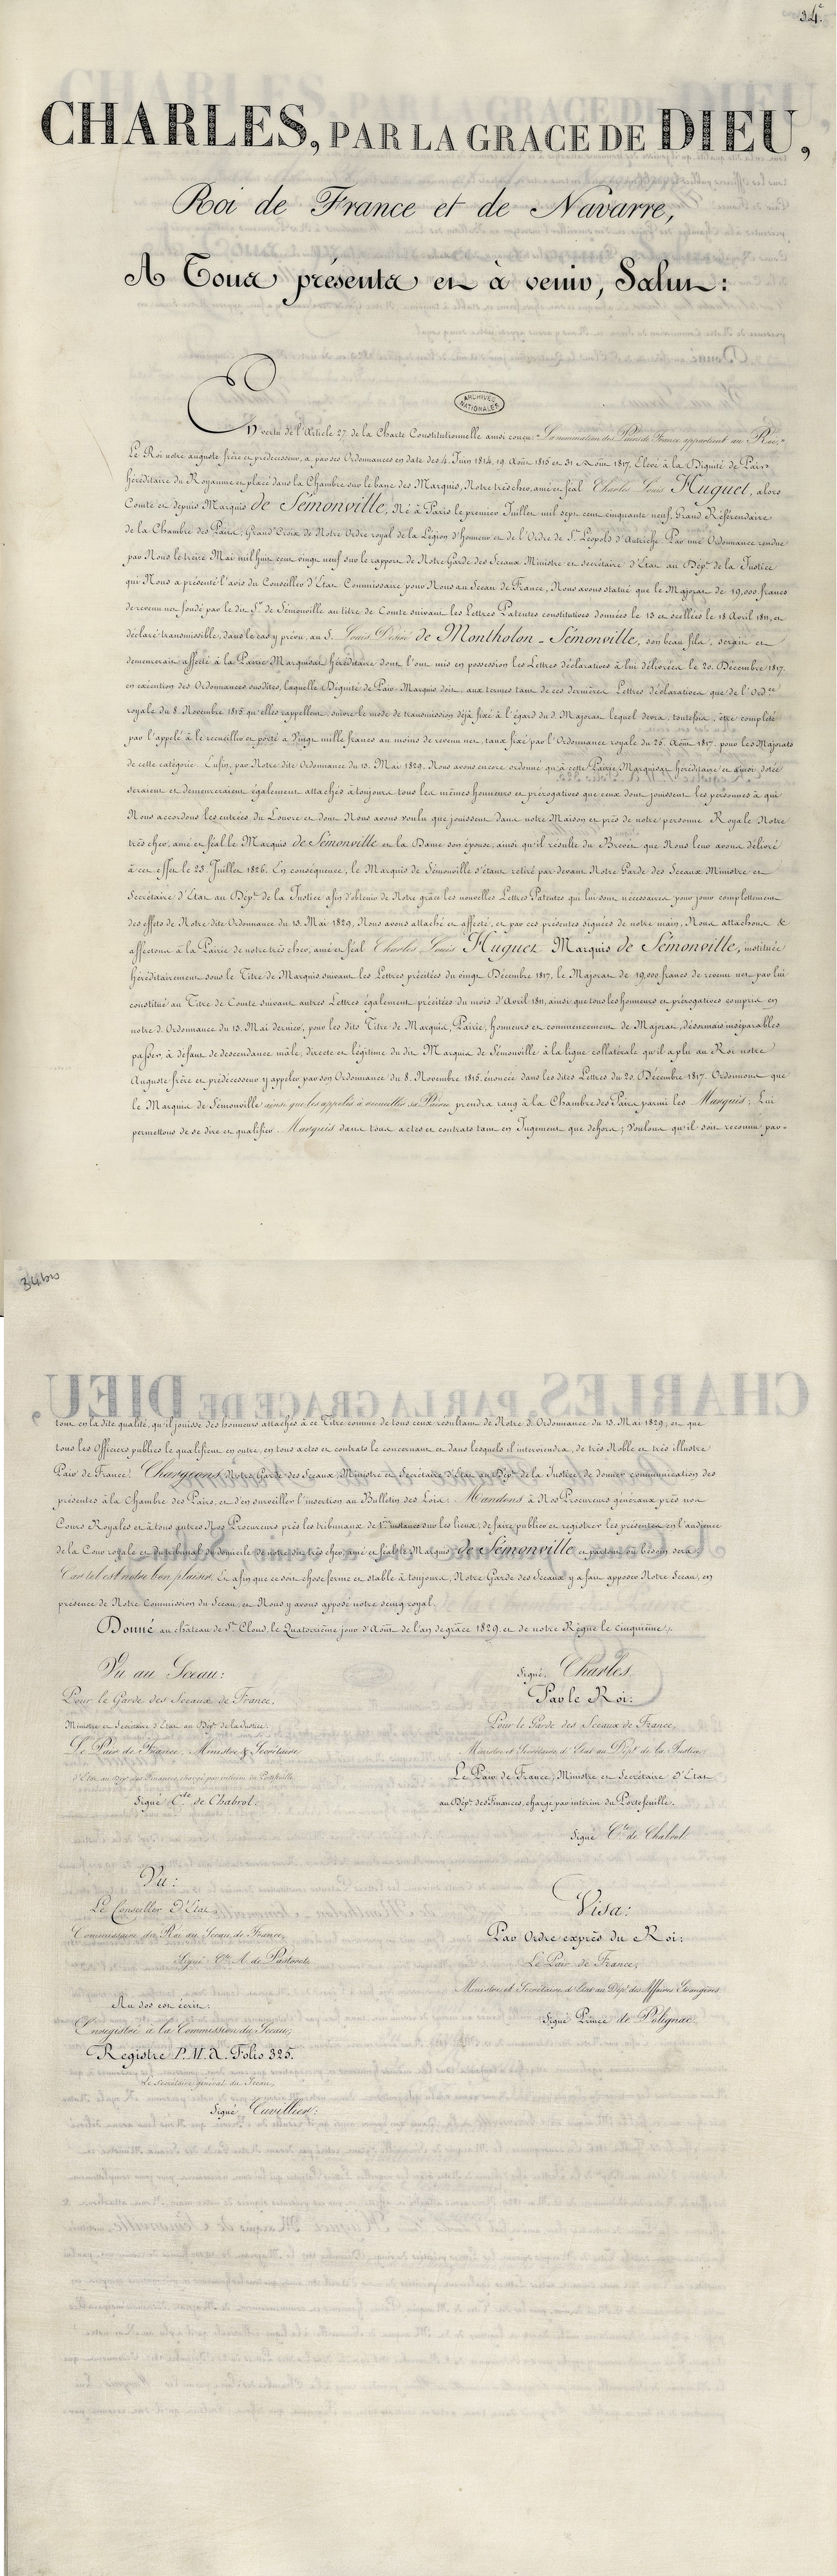 34.e
CHARLES, PAR LA GRACE DE DIEU,
Roi de France et de Navarre,
A Tous présents et à venir, Salut :
ARCHIVES NATIONALES
En vertu de l'Article 27 de la Charte Constitutionnelle ainsi conçu : "La nomination des Pairs de France appartient au Roi,"
Le Roi notre auguste frère et prédécesseur, a par ses Ordonnances en date des 4 Juin 1814, 19 Août 1815 et 31 Août 1817, Elevé à la Dignité de Pair
héréditaire du Royaume et placé dans la Chambre sur le banc des Marquis, Notre très cher, amé et féal Charles Louis Huguet, alors
Comte et depuis Marquis de Sémonville, Né à Paris le premier Juillet mil sept cent cinquante neuf, Grand Référendaire
de la Chambre des Pairs, Grand'Croix de Notre Ordre royal de la Légion d'honneur et de l'Ordre de St. Léopold d'Autriche. Par une Ordonnance rendue
par Nous le treize Mai mil huit cent vingt neuf sur le rapport de Notre Garde des Sceaux Ministre et Secrétaire d'Etat au Dépt. de la Justice
qui Nous a présenté l'avis du Conseiller d'Etat Commissaire pour Nous au Sceau de France, Nous avons statué que le Majorat de 19,000 francs
de revenu net fondé par le dit Sr. de Sémonville au titre de Comte suivant les Lettres Patentes constitutives données le 13 et scellées le 18 Avril 1811, et
déclaré transmissible, dans le cas y prévu, au S. Louis Désiré de Montholon-Sémonville, son beau fils, serait et
demeurerait affecté à la Pairie Marquisat héréditaire dont l'ont mis en possession les Lettres déclaratives à lui délivrées le 20 Décembre 1817.
en exécution des Ordonnances susdites, laquelle Dignité de Pair-Marquis doit, aux termes tant de ces dernières Lettres déclaratives que de l'Ordce
royale du 8 Novembre 1815 qu'elles rappellent, suivre le mode de transmission déjà fixé à l'égard du d. Majorat lequel devra, toutefois, être complété
par l'appelé à le recueillir et porté à Vingt mille francs au moins de revenu net, taux fixé par l'Ordonnance royale du 25 Août 1817 pour les Majorats
de cette catégorie. Enfin, par Notre dite Ordonnance du 13 Mai 1829, Nous avons encore ordonné qu'à cette Pairie Marquisat héréditaire et ainsi dotée
seraient et demeureraient également attachés à toujours tous les mêmes honneurs et prérogatives que ceux dont jouissent les personnes à qui
Nous accordons les entrées du Louvre et dont Nous avons voulu que jouissent dans notre Maison et près de notre personne Royale Notre
très cher, amé et féal le Marquis de Sémonville et la Dame son épouse, ainsi qu'il résulte du Brevet que Nous leur avons délivré
à cet effet le 23 Juillet 1826. En conséquence, le Marquis de Sémonville s'étant retiré par devant Notre Garde des Sceaux Ministre et
Secrétaire d'Etat au Dépt. de la Justice afin d'obtenir de Notre grâce les nouvelles Lettres Patentes qui lui sont nécessaires pour jouir complettement
des effets de Notre dite Ordonnance du 13 Mai 1829, Nous avons attaché et affecté, et par ces présentes signées de notre main, Nous attachons &
affectons à la Pairie de notre très cher, amé et féal Charles Louis Huguet Marquis de Sémonville, instituée
héréditairement sous le Titre de Marquis suivant les Lettres précitées du vingt Décembre 1817, le Majorat de 19,000 francs de revenu net par lui
constitué au Titre de Comte suivant autres Lettres également précitées du mois d'Avril 1811, ainsi que tous les honneurs et prérogatives compris en
notre d. Ordonnance du 13 Mai dernier, pour les dits Titre de Marquis, Pairie, honneurs et commencement de Majorat, désormais inséparables
passer, à défaut de descendance mâle, directe et légitime du dit Marquis de Sémonville à la ligne collatérale qu'il a plu au Roi notre
Auguste frère et prédécesseur y appeler par son Ordonnance du 8 Novembre 1815 énoncée dans les dites Lettres du 20 Décembre 1817. Ordonnons que
le Marquis de Sémonville ainsi que les appelés à recueillir sa Pairie prendra rang à la Chambre des Pairs parmi les Marquis ; Lui
permettons de se dire et qualifier Marquis dans tous actes et contrats tant en Jugement que dehors ; Voulons qu'il soit reconnu par-
34 bis
tout en la dite qualité, qu'il jouisse des honneurs attachés à ce Titre comme de tous ceux résultant de Notre d. Ordonnance du 13 Mai 1829, et que
tous les Officiers publics le qualifient en outre, en tous actes et contrats le concernant et dans lesquels il interviendra, de très Noble et très illustre
Pair de France. Chargeons Notre Garde des Sceaux, Ministre et Secrétaire d'Etat au Dépt. de la Justice de donner communication des
présentes à la Chambre des Pairs, et d'en surveiller l'insertion au Bulletin des Lois. Mandons à Nos Procureurs généraux près nos
Cours Royales et à tous autres Nos Procureurs près les tribunaux de 1ère instance sur les lieux, de faire publier et registrer les présentes en l'audience
de la Cour royale et du tribunal du domicile de notre dit très cher, amé et féal le Marquis de Sémonville et partout où besoin sera :
Car tel est notre bon plaisir. Et afin que ce soit chose ferme et stable à toujours, Notre Garde des Sceaux y a fait apposer Notre Sceau, en
présence de Notre Commission du Sceau, et Nous y avons apposé notre seing royal.
Donné au château de St. Cloud, le Quatorzième jour d'Août de l'an de grâce 1829 et de notre Règne le Cinquième.
Vu au Sceau :
Pour le Garde des Sceaux de France,
Ministre et Secrétaire d'Etat au Dépt. de la Justice :
Le Pair de France, Ministre & Secrétaire
d'Etat au Dépt. des Finances, chargé par intérim du Portefeuille.
Signé Cte. de Chabrol.
Signé, Charles.
Par le Roi :
Pour le Garde des Sceaux de France,
Ministre et Secrétaire d'Etat au Dépt. de la Justice,
Le Pair de France, Ministre et Secrétaire d'Etat
au Dépt. des Finances, chargé par intérim du Portefeuille.
Signé Cte. de Chabrol.
Vu :
Le Conseiller d'Etat,
Commissaire du Roi au Sceau de France,
Signé Cte. A. de Pastoret.
Visa :
Par Ordre exprès du Roi :
Le Pair de France,
Ministre et Secrétaire d'Etat au Dépt. des Affaires Etrangères
Signé Prince de Polignac.
Au dos est écrit :
Enregistré à la Commission du Sceau,
Registre P. M. X. Folio 325.
Le Secrétaire général du Sceau,
Signé, Cuvillier.